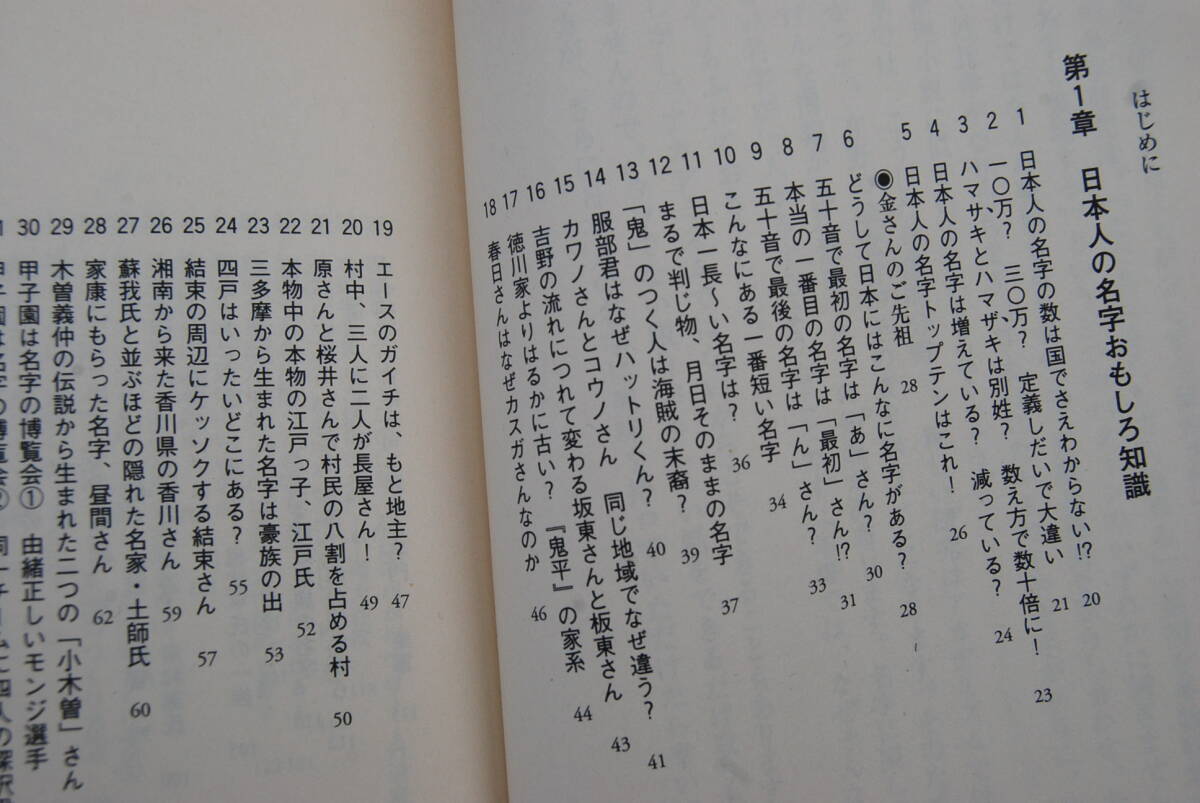 はじめに
第1章　日本人の名字おもしろ知識
1　日本人の名字の数は国でさえわからない!?　20
2　一〇万?　三〇万?　定義しだいで大違い　21
3　ハマサキとハマザキは別姓?　数え方で数十倍に!　23
4　日本人の名字は増えている?　減っている?　24
5　日本人の名字トップテンはこれ!　26
◉金さんのご先祖　28
6　どうして日本にはこんなに名字がある?　28
7　五十音で最初の名字は「あ」さん?　30
8　本当の一番目の名字は「最初」さん!?　31
9　五十音で最後の名字は「ん」さん?　33
10　こんなにある一番短い名字　34
11　日本一長〜い名字は?　36
12　まるで判じ物、月日そのままの名字　37
13　「鬼」のつく人は海賊の末裔?　39
14　服部君はなぜハットリくん?　40
15　カワノさんとコウノさん　同じ地域でなぜ違う?　41
16　吉野の流れにつれて変わる坂東さんと板東さん　43
17　徳川家よりはるかに古い?　『鬼平』の家系　44
18　春日さんはなぜカスガさんなのか　46
19　エースのガイチは、もと地主?　47
20　村中、三人に二人が長屋さん!　49
21　原さんと桜井さんで村民の八割を占める村　50
22　本物中の本物の江戸っ子、江戸氏　52
23　三多摩から生まれた名字は豪族の出　53
24　四戸はいったいどこにある?　55
25　結束の周辺にケッソクする結束さん　57
26　湘南から来た香川県の香川さん　59
27　蘇我氏と並ぶほどの隠れた名家・土師氏　60
28　家康にもらった名字、昼間さん　62
29　木曽義仲の伝説から生まれた二つの「小木曽」さん
30　甲子園は名字の博覧会①　由緒正しいモンジ選手